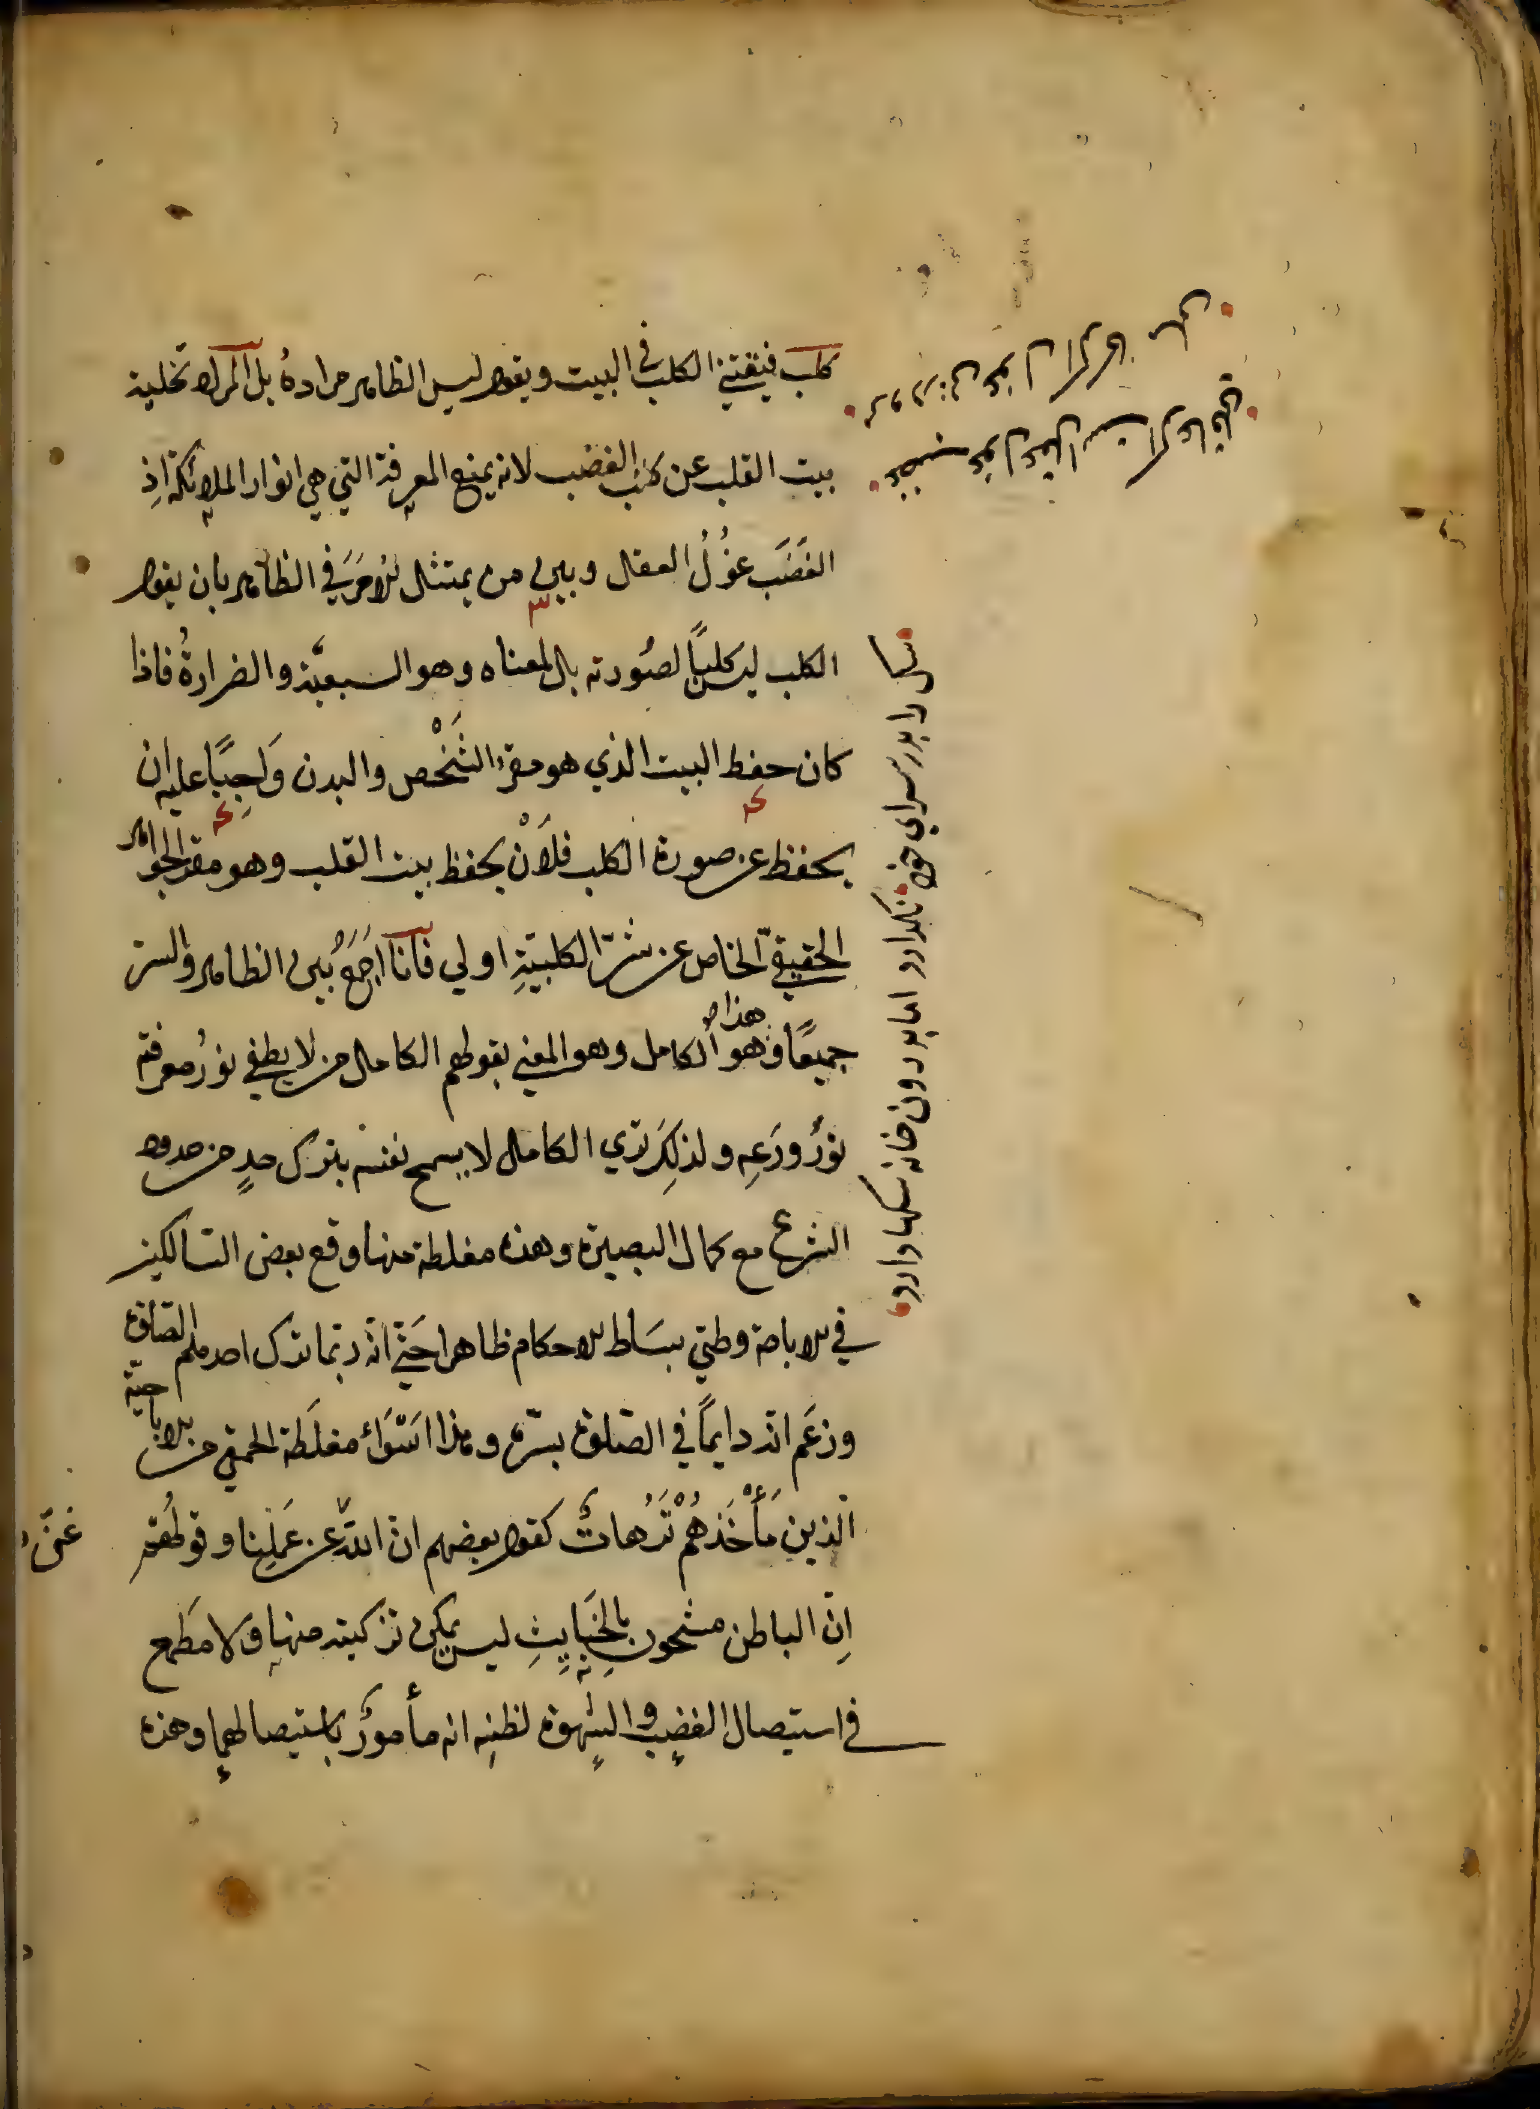 كلب فيقتني الكلب في البيت ويقول ليس الظاهر مراده بل المراد تخلية
بيت القلب عن كلب الغضب لانه يمنع المعرفة التي هي انوار الملائكة اذِ
الغَضَب غُولُ العقل وبين من يمتثل الامرَ في الظاهر بان يقول
الكلب ليس كلباً لصُورته بل لمعناه وهو السبعيَّة والضراوةُ فاذا
كان حفظ البيت الذي هو مقرّ الشَّخْص والبدن وَاجِبًا عليه ان
يحفظ عن صورة الكلب فلَاَنْ يحفظ بيت القلب وهو مقر الجواهر
الحقيقيّ الخاص عن شرّ الكلبيّةِ اولي فانا اَجمَعُ بين الظاهر والسّر
جميعًا وهذا هو الكامل وهو المعني بقولهم الكامل من لا يطفي نورُ معرفته
نورُ ورَعِه ولذلِكَ تري الكامل لا يسمح نفسه بترك حدٍ من حدود
الشرع مع كمال البصيرة وهذه مغلطة منها وقع بعض السّالكين
في الاباحة وطيّ بسَاط الاحكام ظاهرا حَتيّ انّه ربّما ترك احدهم الصّلوة
وزعَم انّه دايماً في الصّلوة بسّره وهذا اسَوَاُ مغلَطة الحمقي من الاباحيّة
الّذين مَأْخَذهُمْ تُرّهاتٌ كقول بعضهم انّ اللّه غنيّ عن عَمَلِنا وقولهم
اِنّ الباطن مشحون بالخَبايِثِ ليس يمكن تزكيته منها ولا مَطمع
في استيصال الغضب والشهوة لظنِه انه مأمورٌ باستيصالهما وهذه